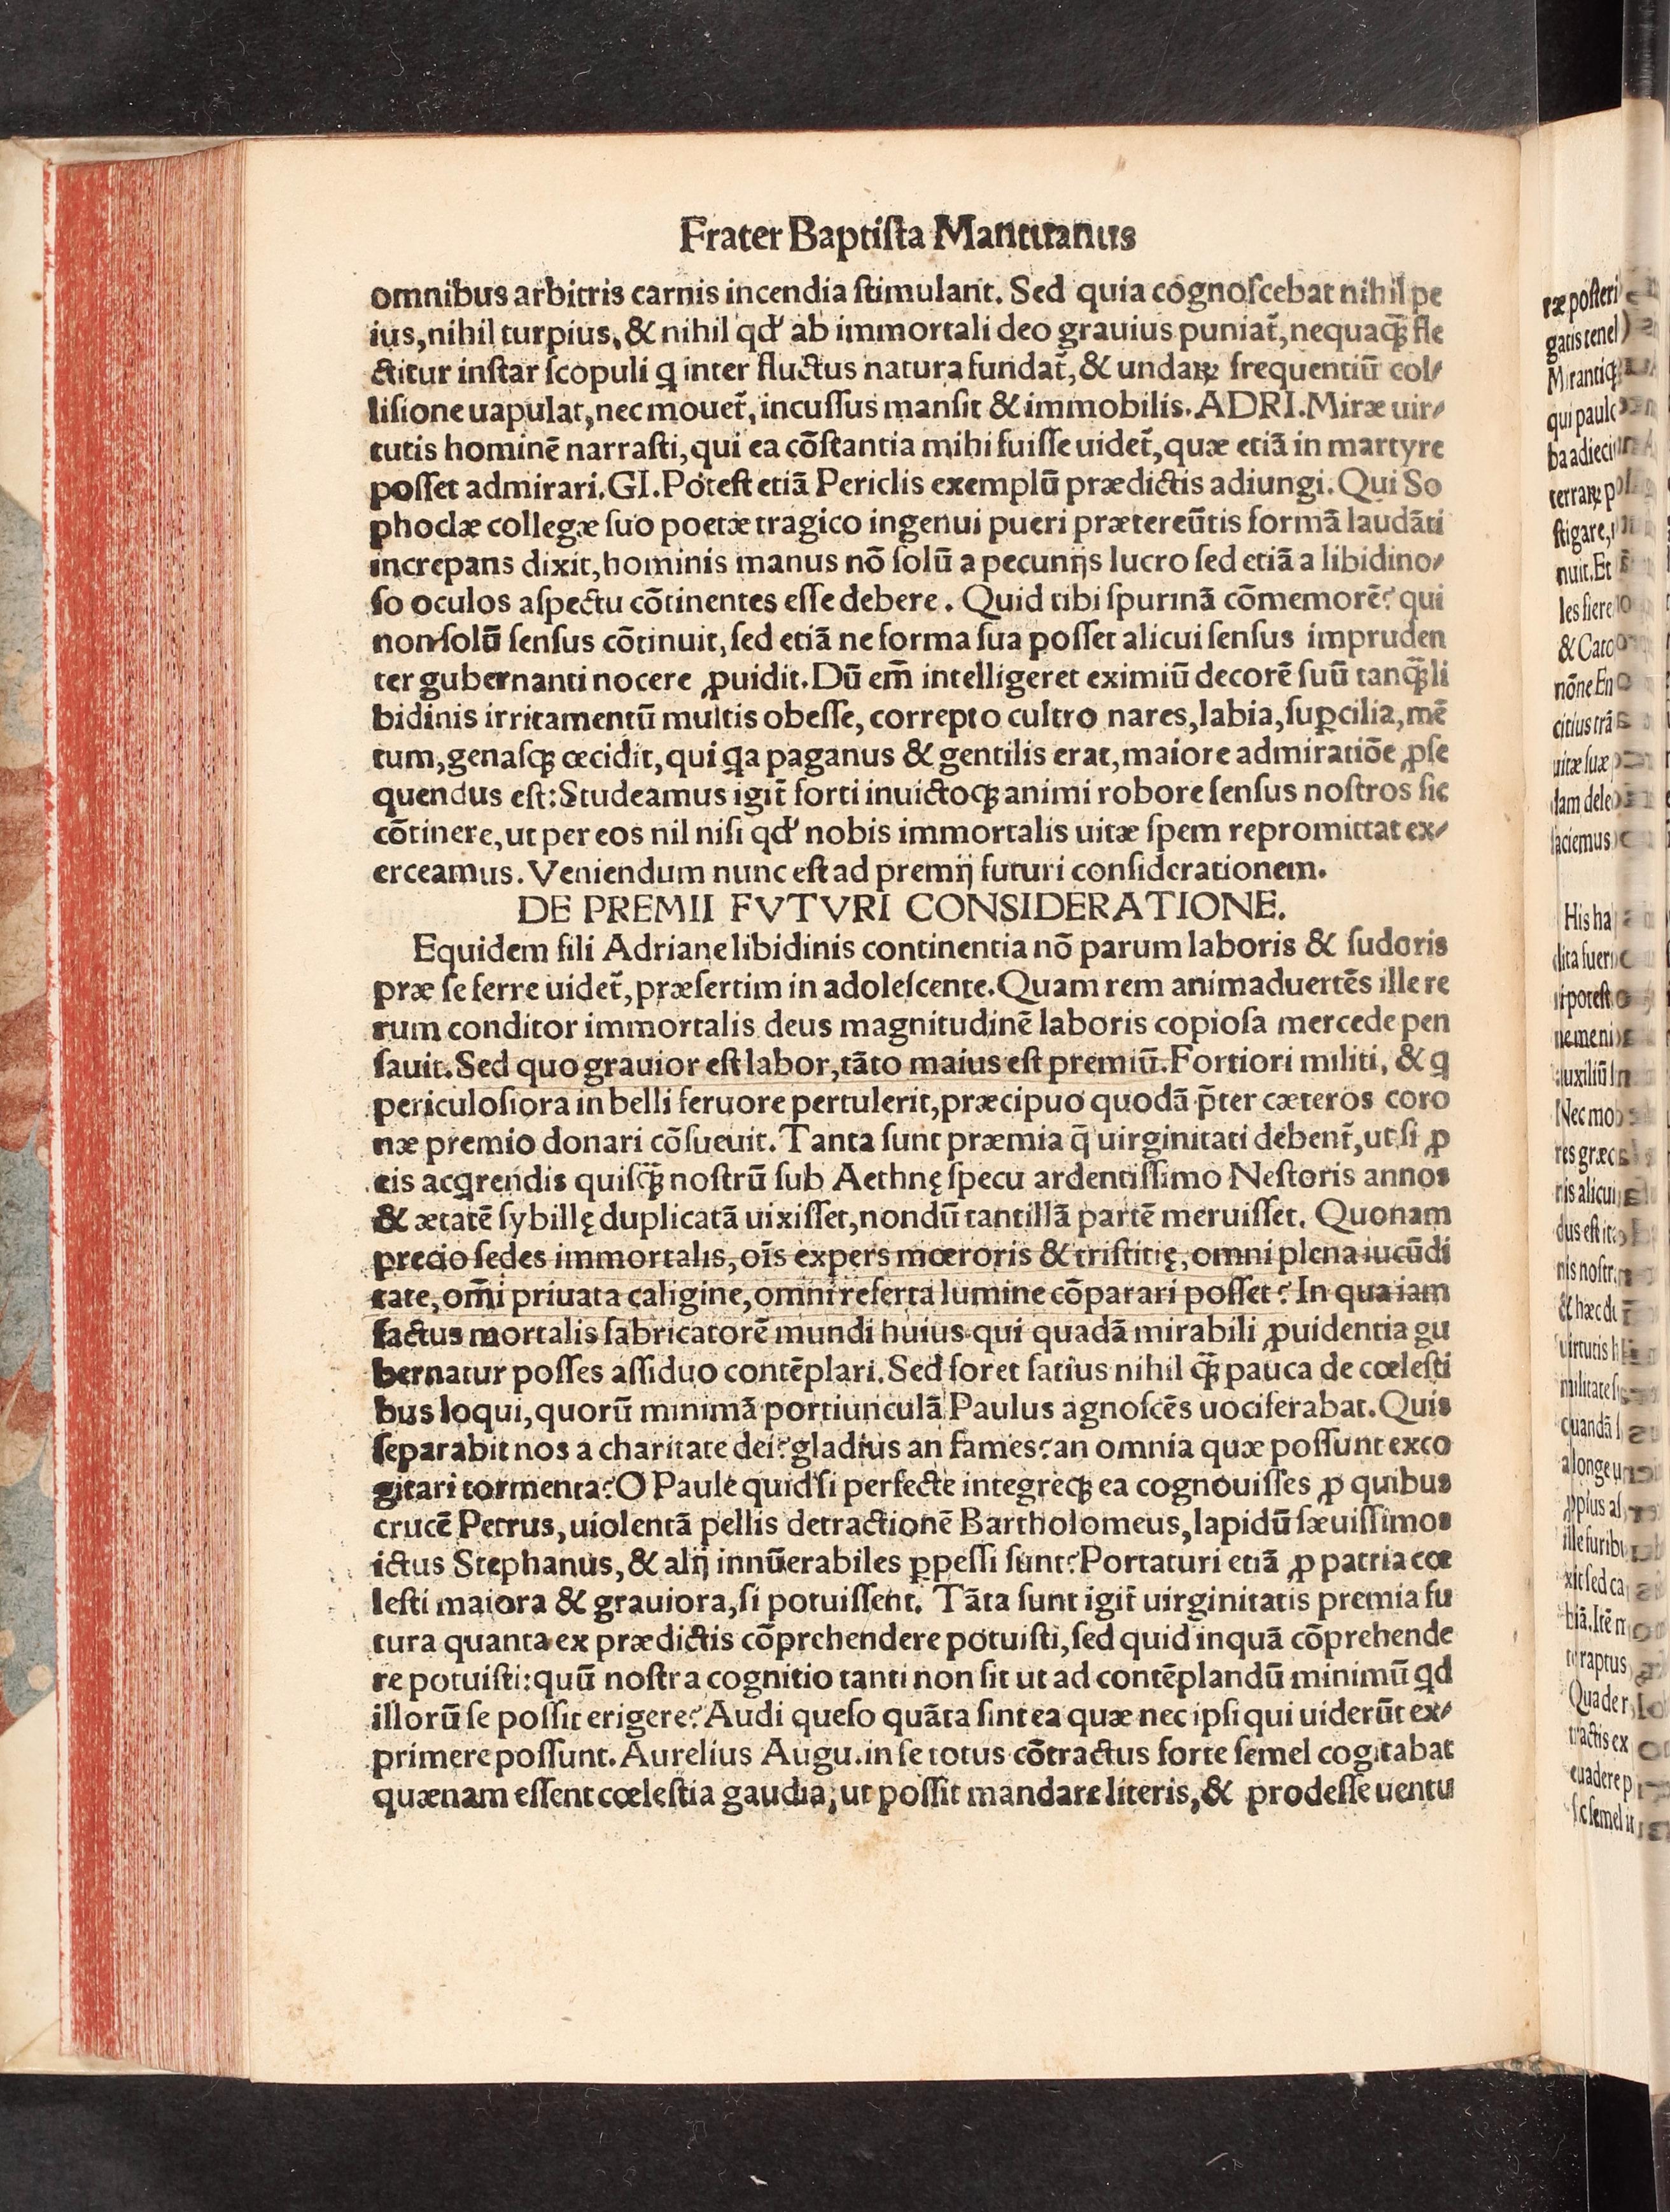 Frater Baptiſta Mantuanus
omnibus arbitris carnis incendia ſtimulant. Sed quia cognoſcebat nihil pe
ius, nihil turpius, & nihil qd' ab immortali deo grauius puniat̄, nequaq̄ꝫ fle
ctitur inſtar ſcopuli q̨ inter fluctus natura fundat̄, & undaꝝ frequentiū col⸗
liſione uapulat, nec mouet̄, incuſſus manſit & immobilis. ADRI. Miræ uir⸗
tutis hominē narraſti, qui ea cōſtantia mihi fuiſſe uidet̄, quæ etiā in martyre
poſſet admirari. GI. Poteſt etiā Periclis exemplū prædictis adiungi. Qui So
phoclæ collegæ ſuo poetæ tragico ingenui pueri prætereūtis formā laudāti
increpans dixit, hominis manus nō ſolū a pecunijs lucro ſed etiā a libidino⸗
ſo oculos aſpectu cōtinentes eſſe debere. Quid tibi ſpurinā cōmemorē? qui
non ſolū ſenſus cōtinuit, ſed etiā ne forma ſua poſſet alicui ſenſus impruden
ter gubernanti nocere ꝓuidit. Dū em̄ intelligeret eximiū decorē ſuū tanq̄ꝫ li
bidinis irritamentū multis obeſſe, correpto cultro nares, labia, ſuꝑcilia, mē
tum, genaſqꝫ cecidit, qui q̨a paganus & gentilis erat, maiore admiratiōe ꝓſe
quendus eſt: Studeamus igit̄ forti inuictoqꝫ animi robore ſenſus noſtros ſic
cōtinere, ut per eos nil niſi qd' nobis immortalis uitæ ſpem repromittat ex⸗
erceamus. Veniendum nunc eſt ad premij futuri conſiderationem.
DE PREMII FVTVRI CONSIDERATIONE.
Equidem fili Adriane libidinis continentia nō parum laboris & ſudoris
præ ſe ferre uidet̄, præſertim in adoleſcente. Quam rem animaduertēs ille re
rum conditor immortalis deus magnitudinē laboris copioſa mercede pen
ſauit. Sed quo grauior eſt labor, tāto maius eſt premiū. Fortiori militi, & q̨
periculoſiora in belli feruore pertulerit, præcipuo quodā p̄ter cæteros coro
næ premio donari cōſueuit. Tanta ſunt præmia q̄ uirginitati debent̄, ut ſi ꝓ
eis acq̨rendis quiſq̄ꝫ noſtrū ſub Aethnę ſpecu ardentiſſimo Neſtoris annos
& ætatē ſybillę duplicatā uixiſſet, nondū tantillā partē meruiſſet. Quonam
precio ſedes immortalis, oīs expers mœroris & triſtitię, omni plena iucūdi
tate, om̄i priuata caligine, omni referta lumine cōparari poſſet? In qua iam
factus mortalis fabricatorē mundi huius qui quadā mirabili ꝓuidentia gu
bernatur poſſes aſſiduo contēplari. Sed foret ſatius nihil q̄ꝫ pauca de cœleſti
bus loqui, quorū minimā portiunculā Paulus agnoſcēs uociferabat. Quis
ſeparabit nos a charitate dei? gladius an fames? an omnia quæ poſſunt exco
gitari tormenta? O Paule quid ſi perfecte integreqꝫ ea cognouiſſes ꝓ quibus
crucē Petrus, uiolentā pellis detractionē Bartholomeus, lapidū ſæuiſſimos
ictus Stephanus, & alij innūerabiles ꝑpeſſi ſunt? Portaturi etiā ꝓ patria cœ
leſti maiora & grauiora, ſi potuiſſent. Tāta ſunt igit̄ uirginitatis premia fu
tura quanta ex prædictis cōprehendere potuiſti, ſed quid inquā cōprehende
re potuiſti: quū noſtra cognitio tanti non ſit ut ad contēplandū minimū q̨d
illorū ſe poſſit erigere? Audi queſo quāta ſint ea quæ nec ipſi qui uiderūt ex⸗
primere poſſunt. Aurelius Augu. in ſe totus cōtractus forte ſemel cogitabat
quænam eſſent cœleſtia gaudia, ut poſſit mandare literis, & prodeſſe uentu